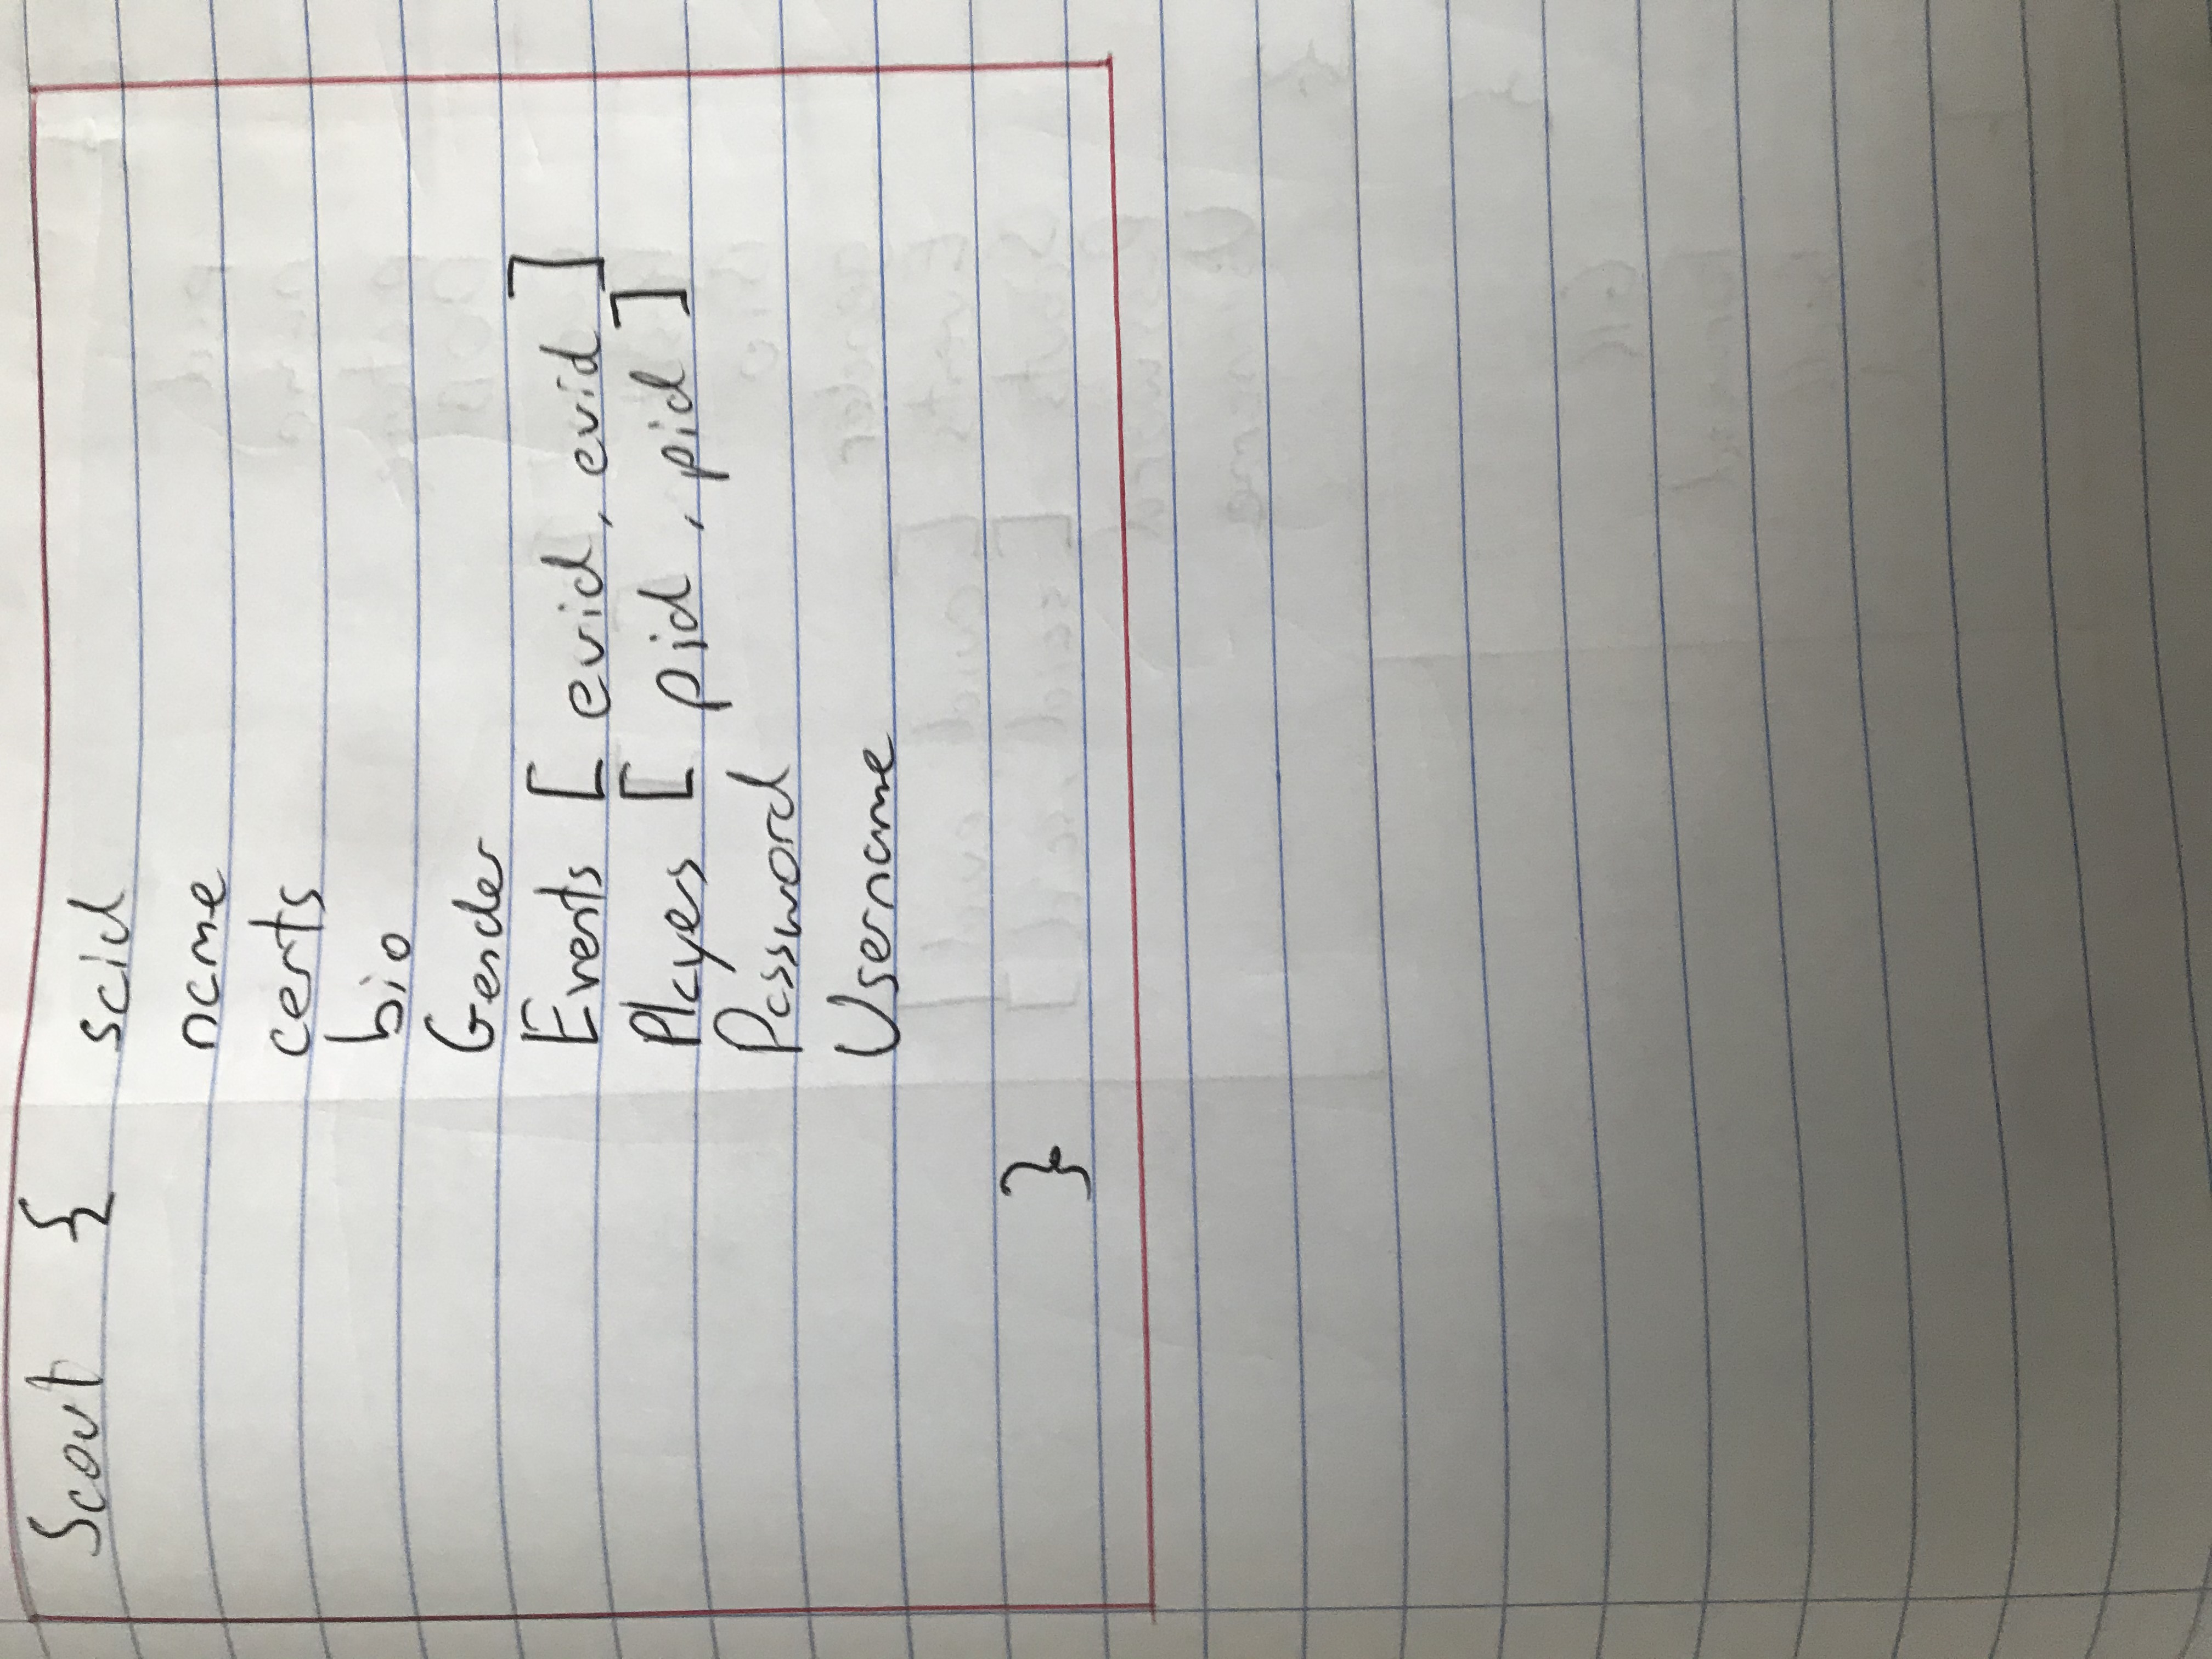 Scout { scid
name
certs
bio
Gender
Events [ evid, evid ]
Players [ pid , pid ]
Password
Username
}